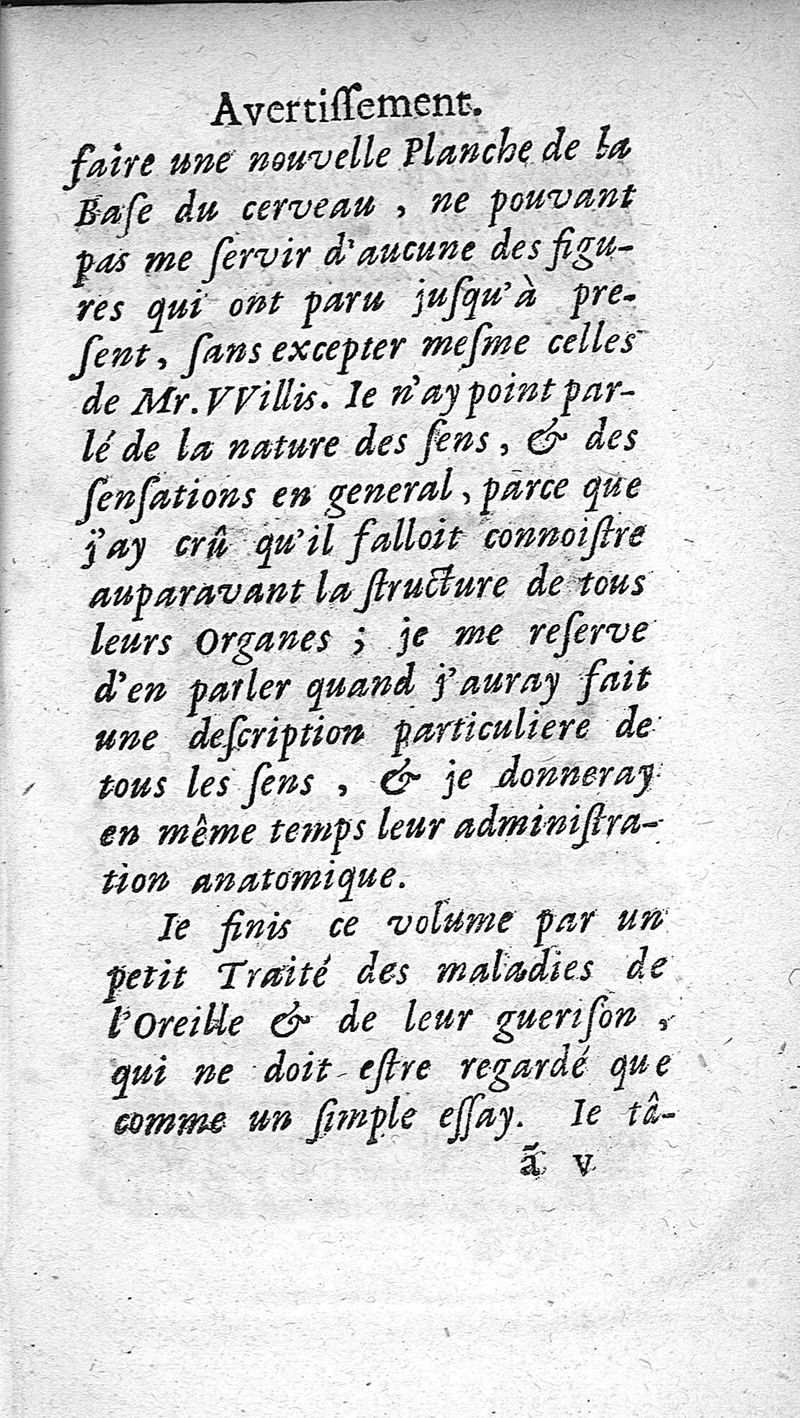 Avertiſſement.
faire une nouvelle Planche de la
Baſe du cerveau , ne pouvant
pas me ſervir d'aucune des figu-
res qui ont paru juſqu'à pre-
ſent, ſans excepter meſme celles
de Mr. VVillis. Ie n'ay point par-
lé de la nature des ſens, & des
ſenſations en general, parce que
j'ay crû qu'il falloit connoiſtre
auparavant la ſtructure de tous
leurs Organes ; je me reſerve
d'en parler quand j'auray fait
une deſcription particuliere de
tous les ſens , & je donneray
en même temps leur adminiſtra-
tion anatomique.
Ie finis ce volume par un
petit Traité des maladies de
l'Oreille & de leur gueriſon ,
qui ne doit eſtre regardé que
comme un ſimple eſſay. Ie tâ-
ã v